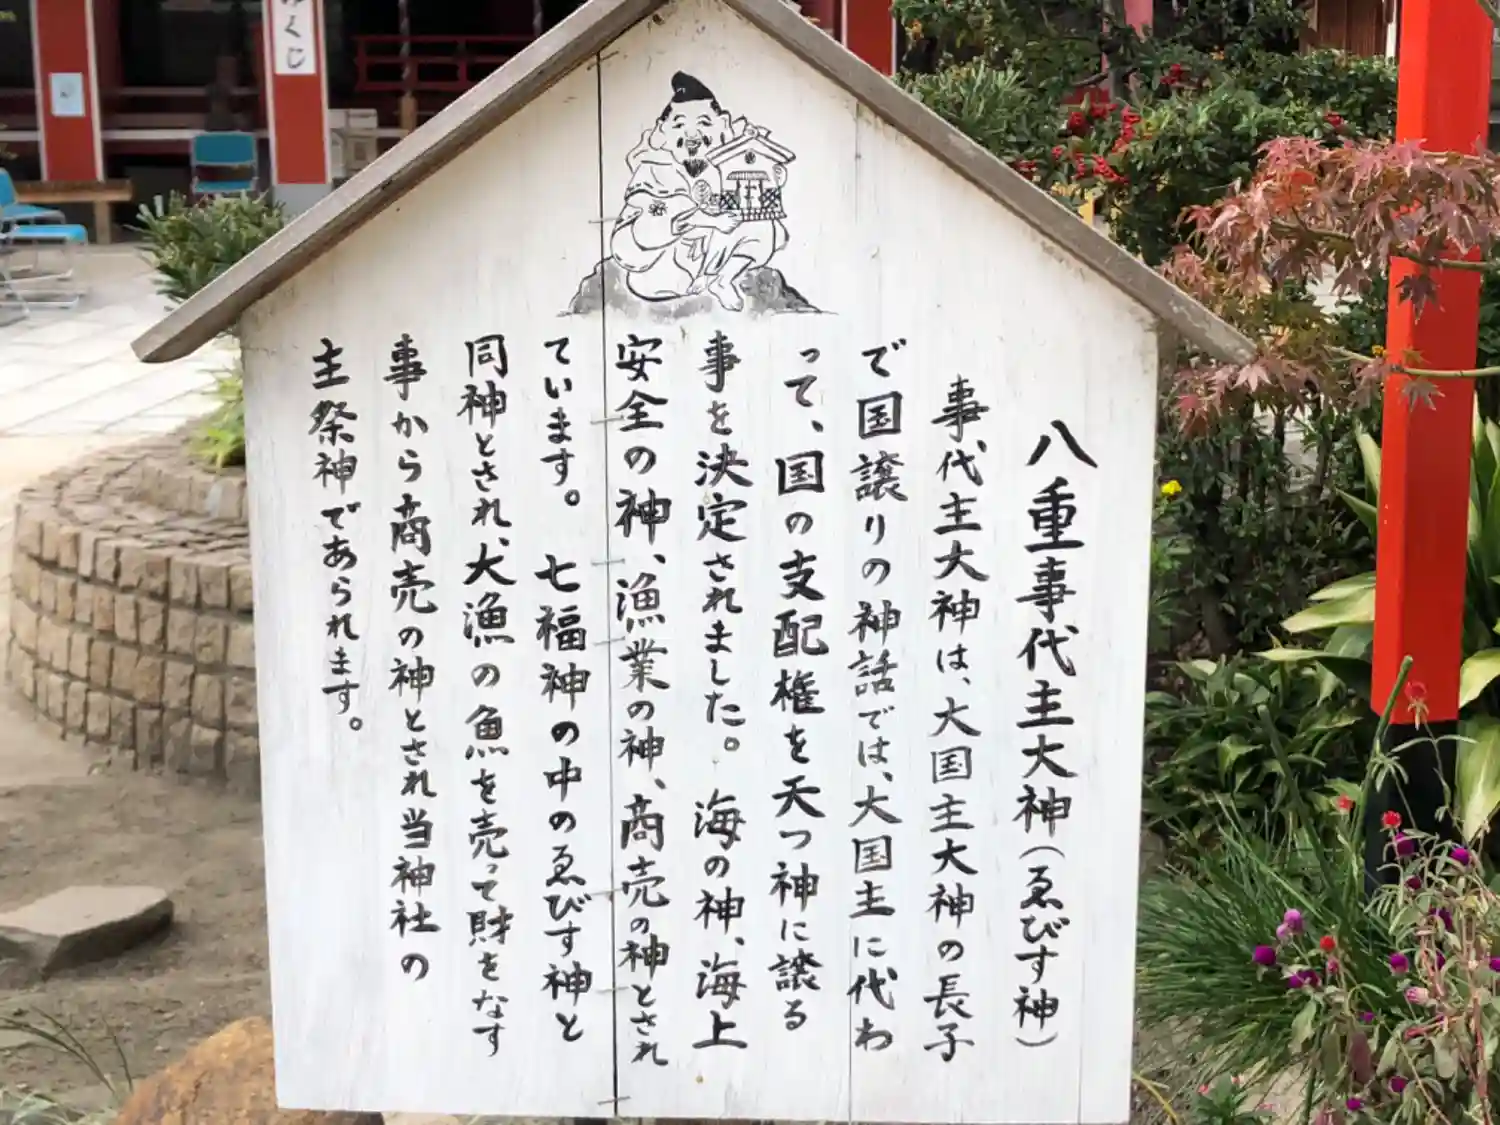 八重事代主大神(ゑびす神)
事代主大神は、大国主大神の長子
で国譲りの神話では、大国主に代わ
って、国の支配権を天つ神に譲る
事を決定されました。海の神、海上
安全の神、漁業の神、商売の神とされ
ています。七福神の中のゑびす神と
同神とされ、大漁の魚を売って財をなす
事から商売の神とされ当神社の
主祭神であられます。
みくじ